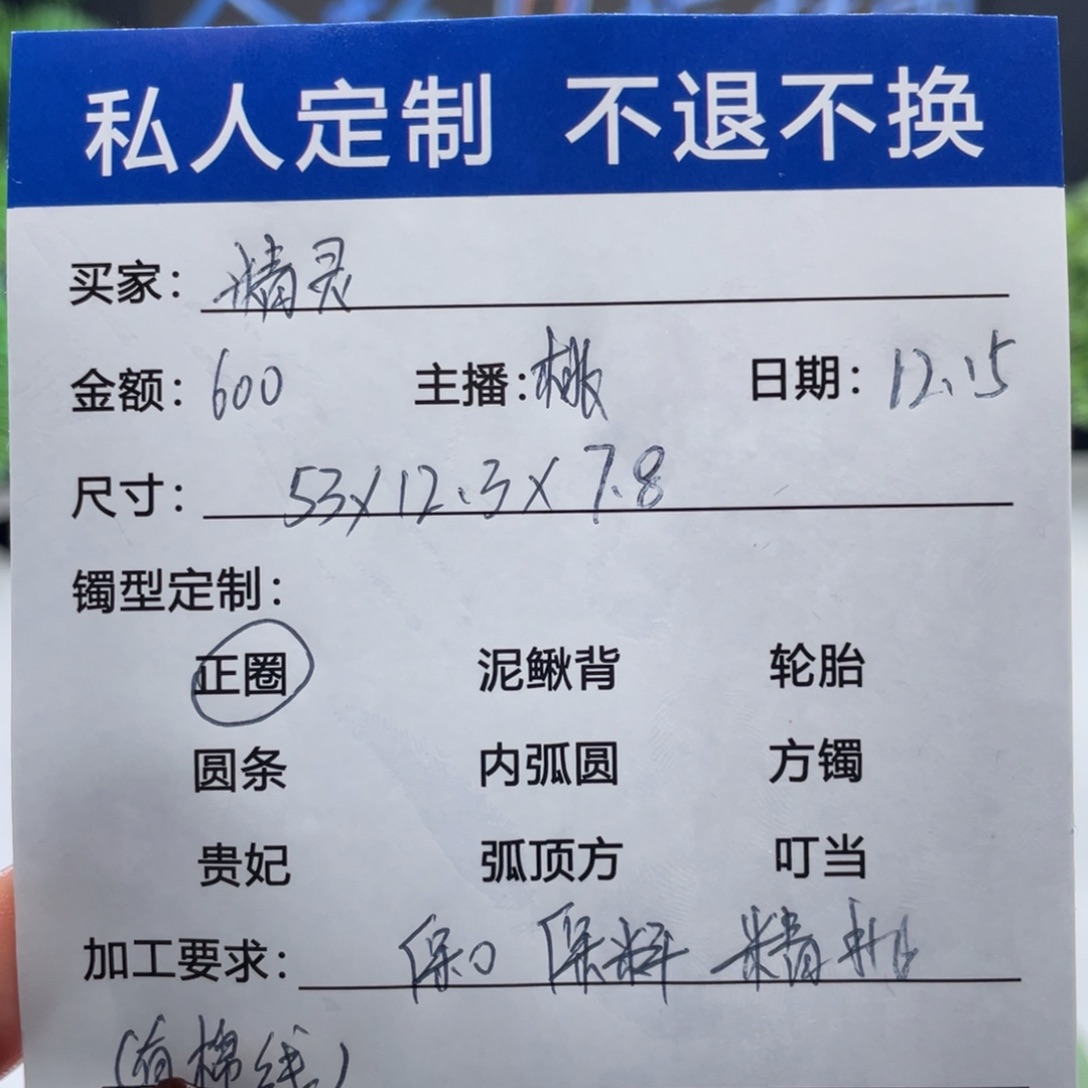 私人定制 不退不换
买家：精灵
金额：600 主播：桃 日期：12.15
尺寸：53×12.3×7.8
镯型定制：
正圈 泥鳅背 轮胎
圆条 内弧圆 方镯
贵妃 弧顶方 叮当
加工要求：保口 保料 精抛
（有棉线）